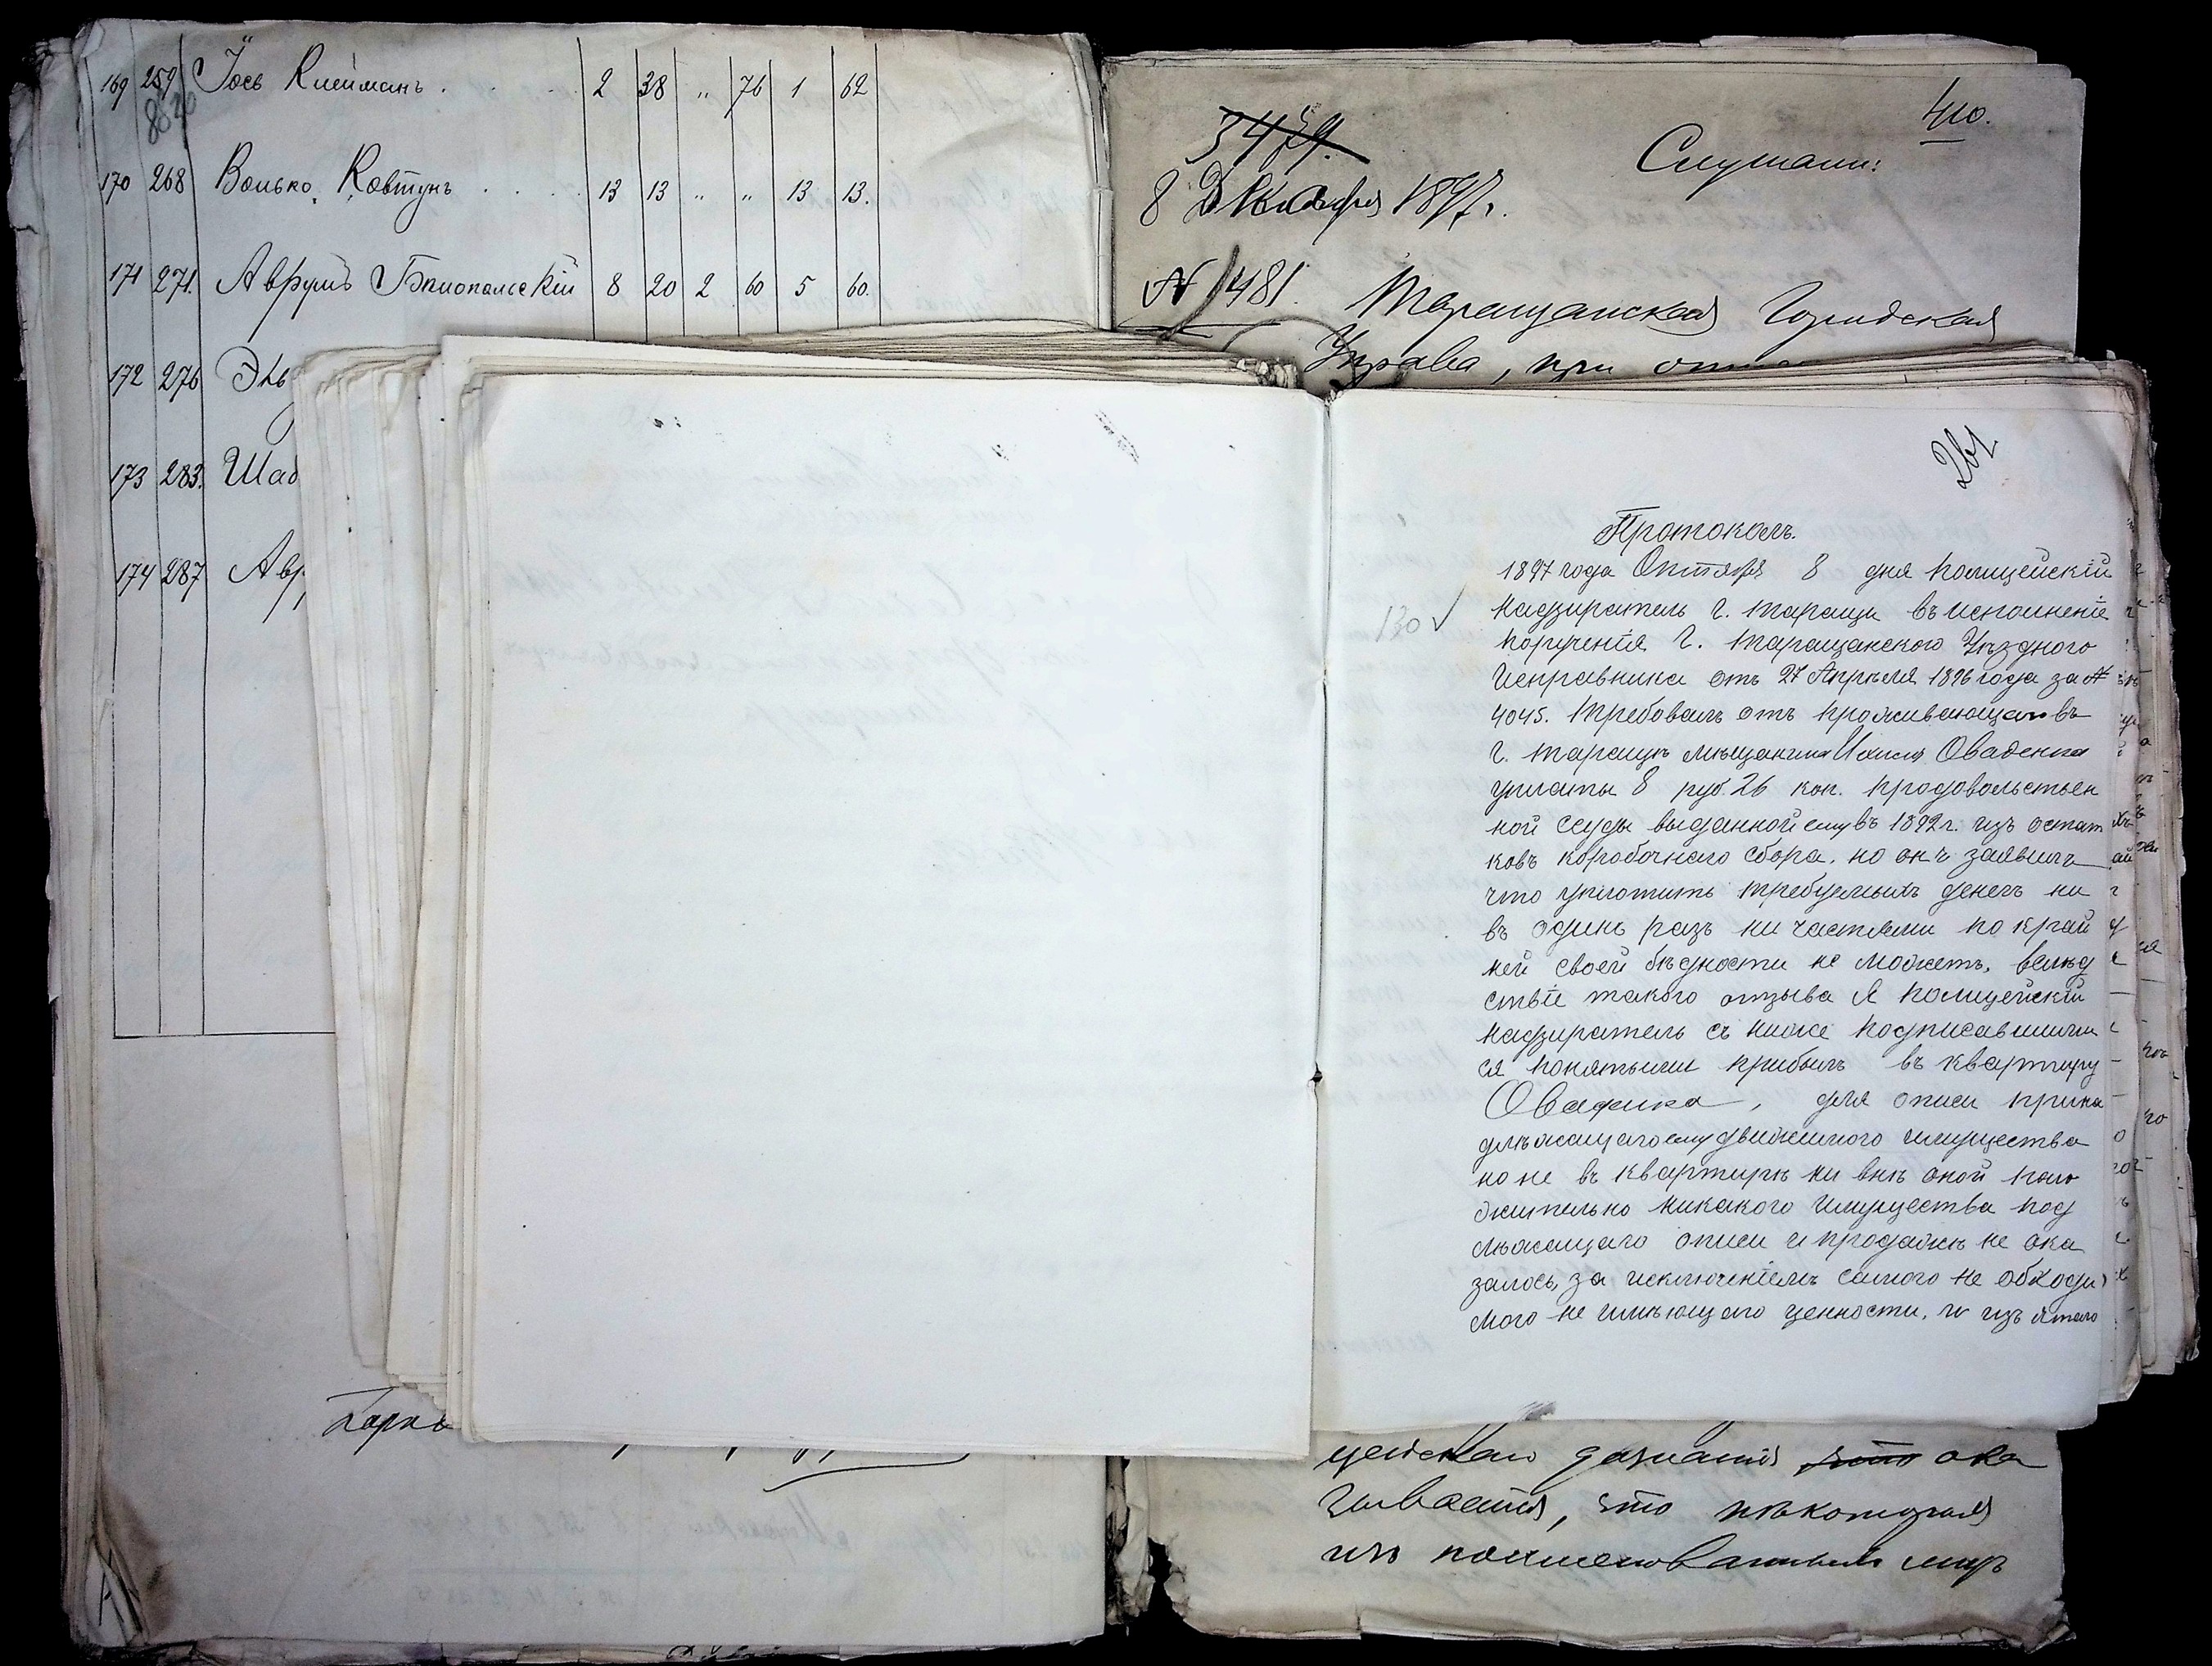 169 259 Іось Клейманъ . . . 2 38 " 76 1 62
8820
170 268 Волько Ковтунъ . . . 13 13 " " 13 13.
171 271. Аврумъ Бялопольскій 8 20 2 60 5 60.
172 276 Эль
173 283. Шад
174 287 Авр
410.
Слушали:
8 Декабря 1897 г.
№ 1481. Таращанская Городская
Управа, при
261
Протоколъ.
130 ✓
1897 года Октября 8 дня полицейскій
надзиратель г. Таращи въ исполненіе
порученія Г. Таращанского Уѣздного
Исправника отъ 27 Апрѣля 1896 года за №
4045. требовалъ отъ проживающаго въ
г. Таращѣ мѣщанина Оваденка
уплаты 8 руб. 26 коп. продовольствен
ной ссуды выданной ему въ 1892 г. изъ остат
ковъ коробочнаго сбора, но онъ заявилъ
что уплотить требуемыхъ денегъ ни
въ одинъ разъ ни частями по край
ней своей бѣдности не можетъ, вслѣд
ствіе такого отзыва Я полицейскій
надзиратель съ ниже подписавшими
ся понятыми прибылъ въ квартиру
Овадика, для описи прина
длѣжащаго ему движимого имущества
но не въ квартирѣ ни внѣ оной поло
жительно никакого имущества под
лѣжащаго описи и продажѣ не ока
залось, за исключеніемъ самого не обходи
мого не имѣющаго ценности,
дознанія что ока
зывается, что нѣкоторыя
изъ поименованныхъ лицъ